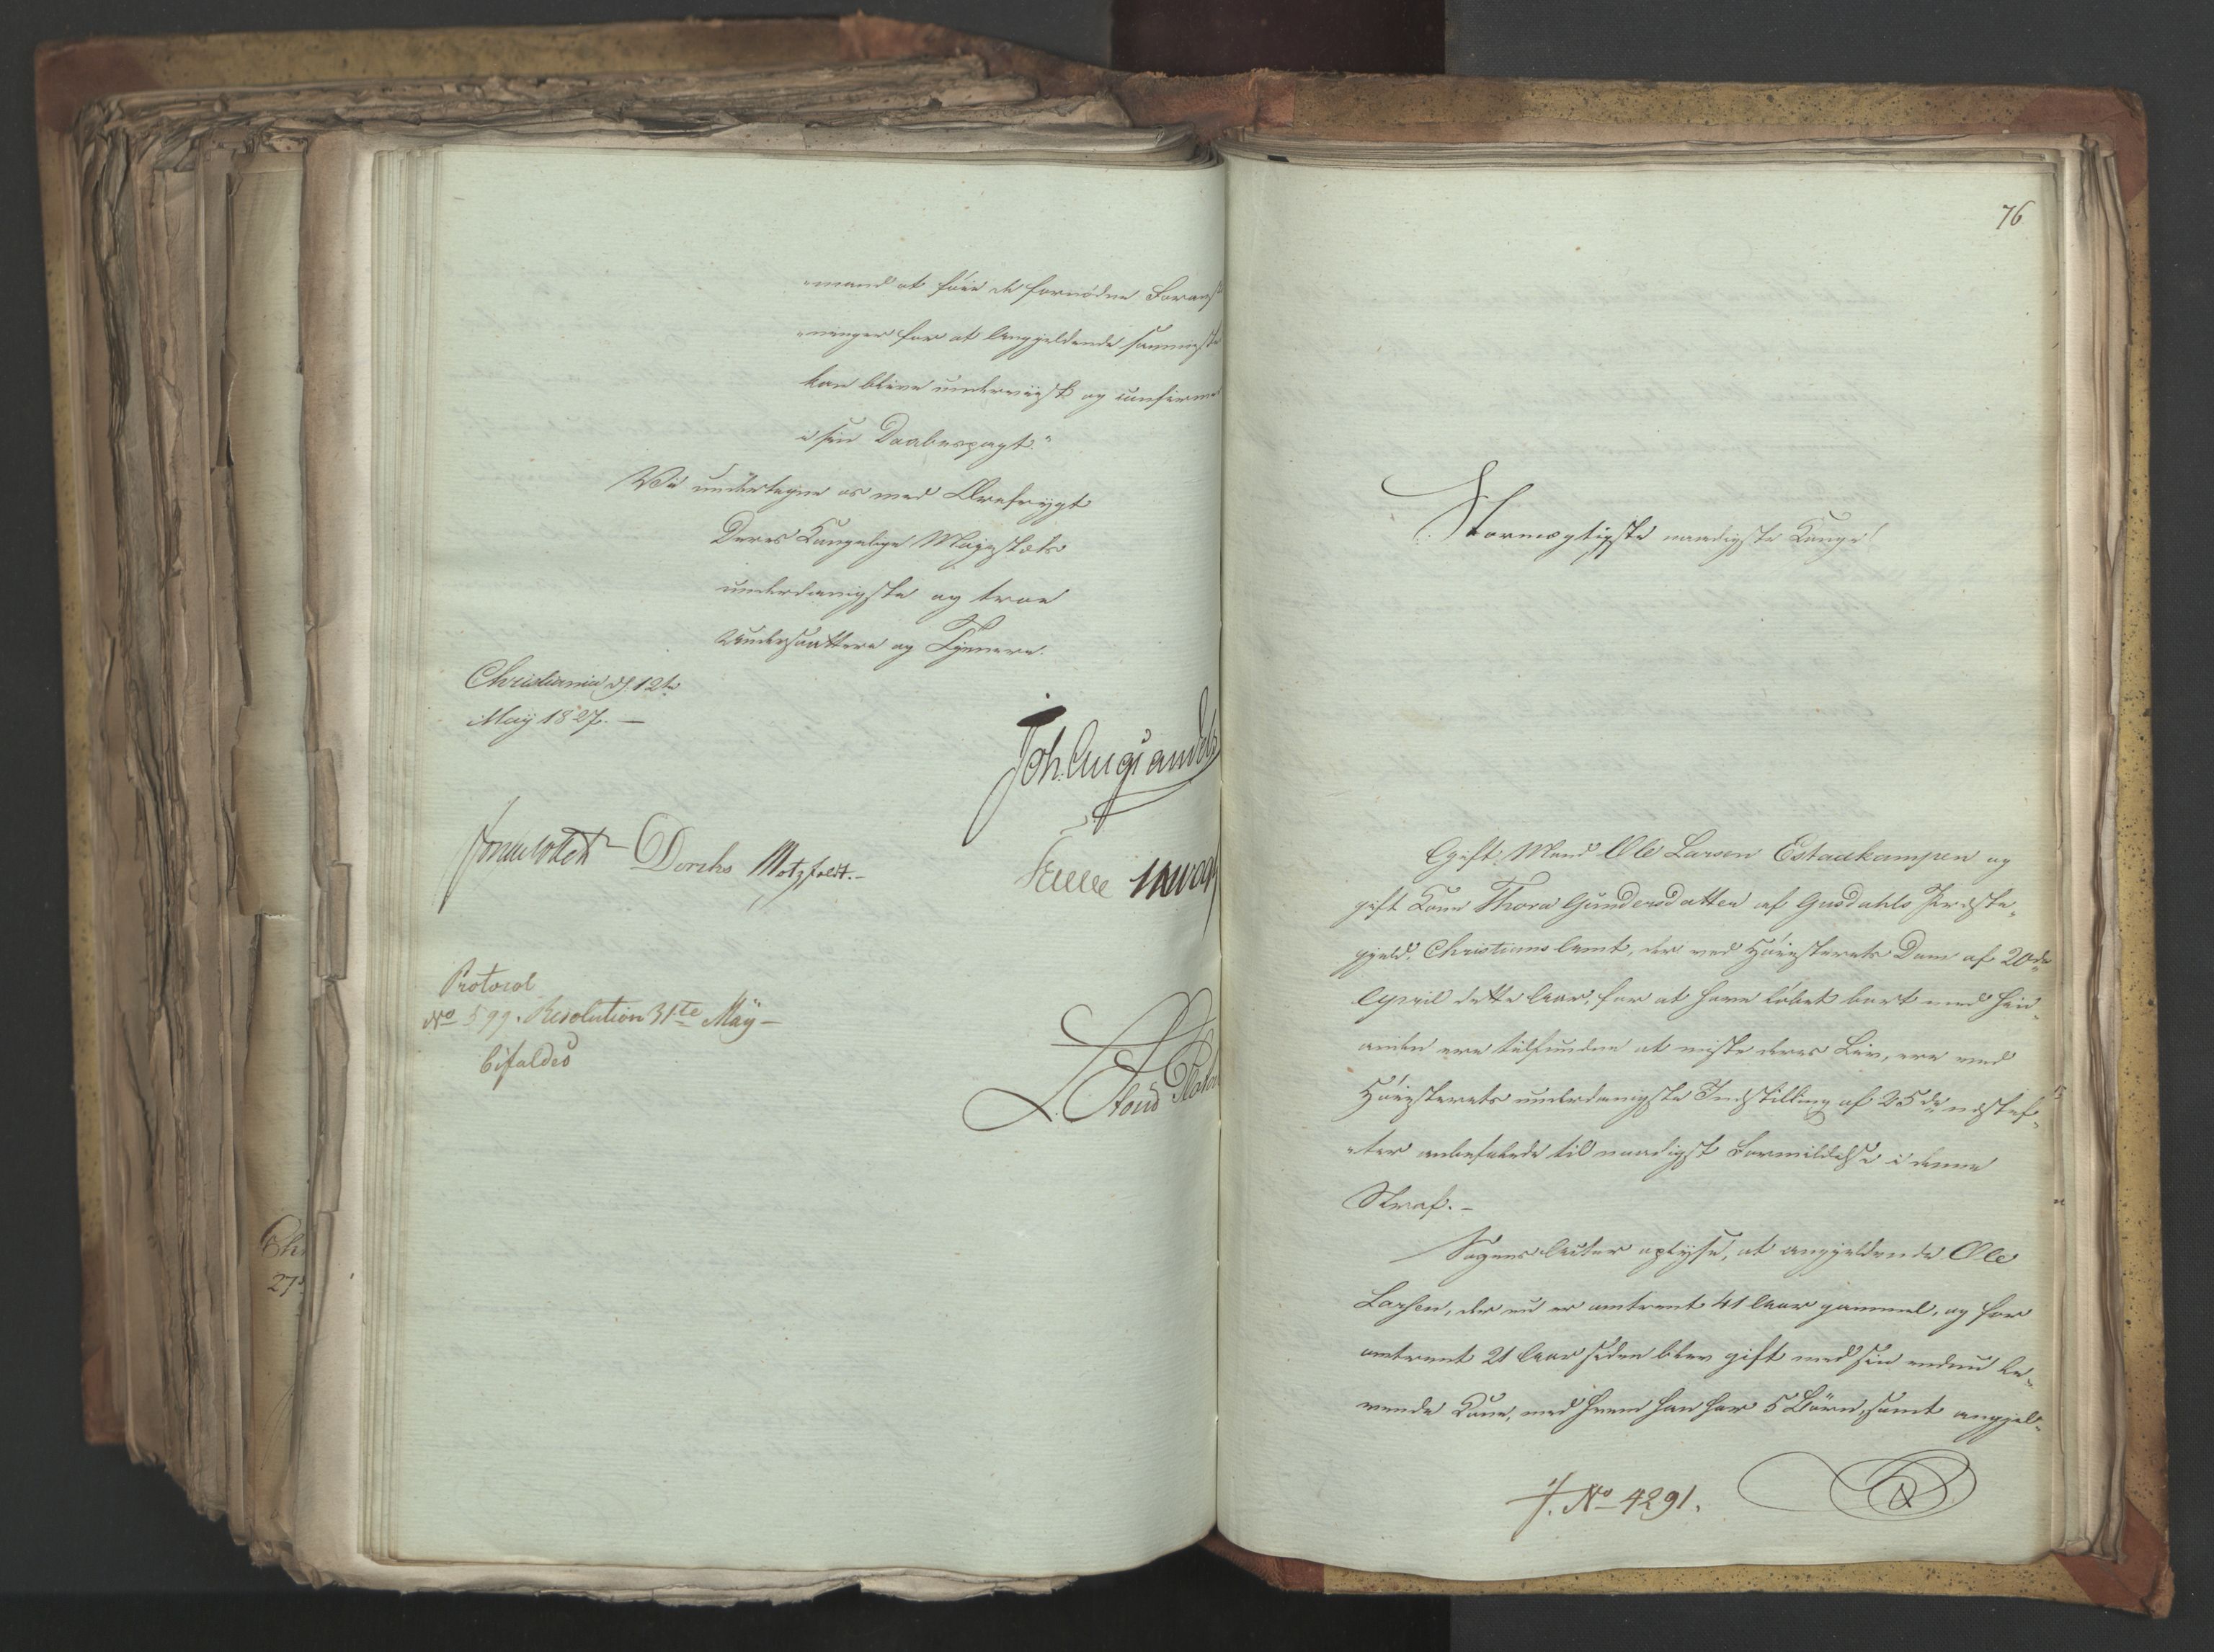 -mand at föie de fornödne Foranst
-ninger for at Angjeldende snaregst
kan blive underviist og confirme
i sin Daabespagt."
Vi undertegne os med Ærefrygt
Deres Kongelige Majestæts
underdanigste og troe
Undersaattere og Tjenere.
Christiania d. 12te
May 1827. —
Joh. Aug. Sandels
Diriks Motzfeldt.-
Protocol
No 599. Resolution 31te May —
bifaldes
76
Stormægtigste naadigste Konge!
Gift Mand Ole Larsen Estadkampen og
gift Kone Thora Gundersdatter af Gusdahls Præste-
gjeld, Christians Amt, der ved Höiesterets Dom af 20de
April dette Aar, for at have löbet bort med hin-
anden ere tilfundne at miste deres Liv, ere ved
Höiesterets underdanigste Indstilling af 25de næstef-
-ter anbefalede til naadigst Formildelse i denne
Straf. —
Sagens Acter oplyse, at angjeldende Ole
Larsen, der nu er omtrent 41 Aar gammel, og for
omtrent 21 Aar siden blev gift med sin endnu le-
vende Kone, med hvem han har 5 Börn, samt angjel-
J. No 4291.